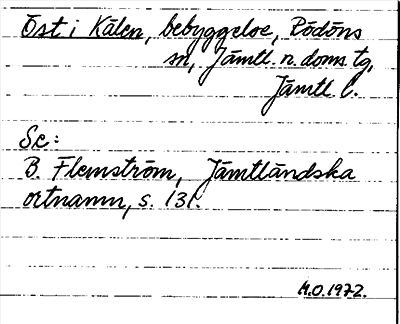 Öst i Kälen, bebyggelse, Rödöns
sn, Jämtl. n. doms. tg,
Jämtl. l.
Se:
B. Flemström, Jämtländska
ortnamn, s. 131.
M.O.1972.